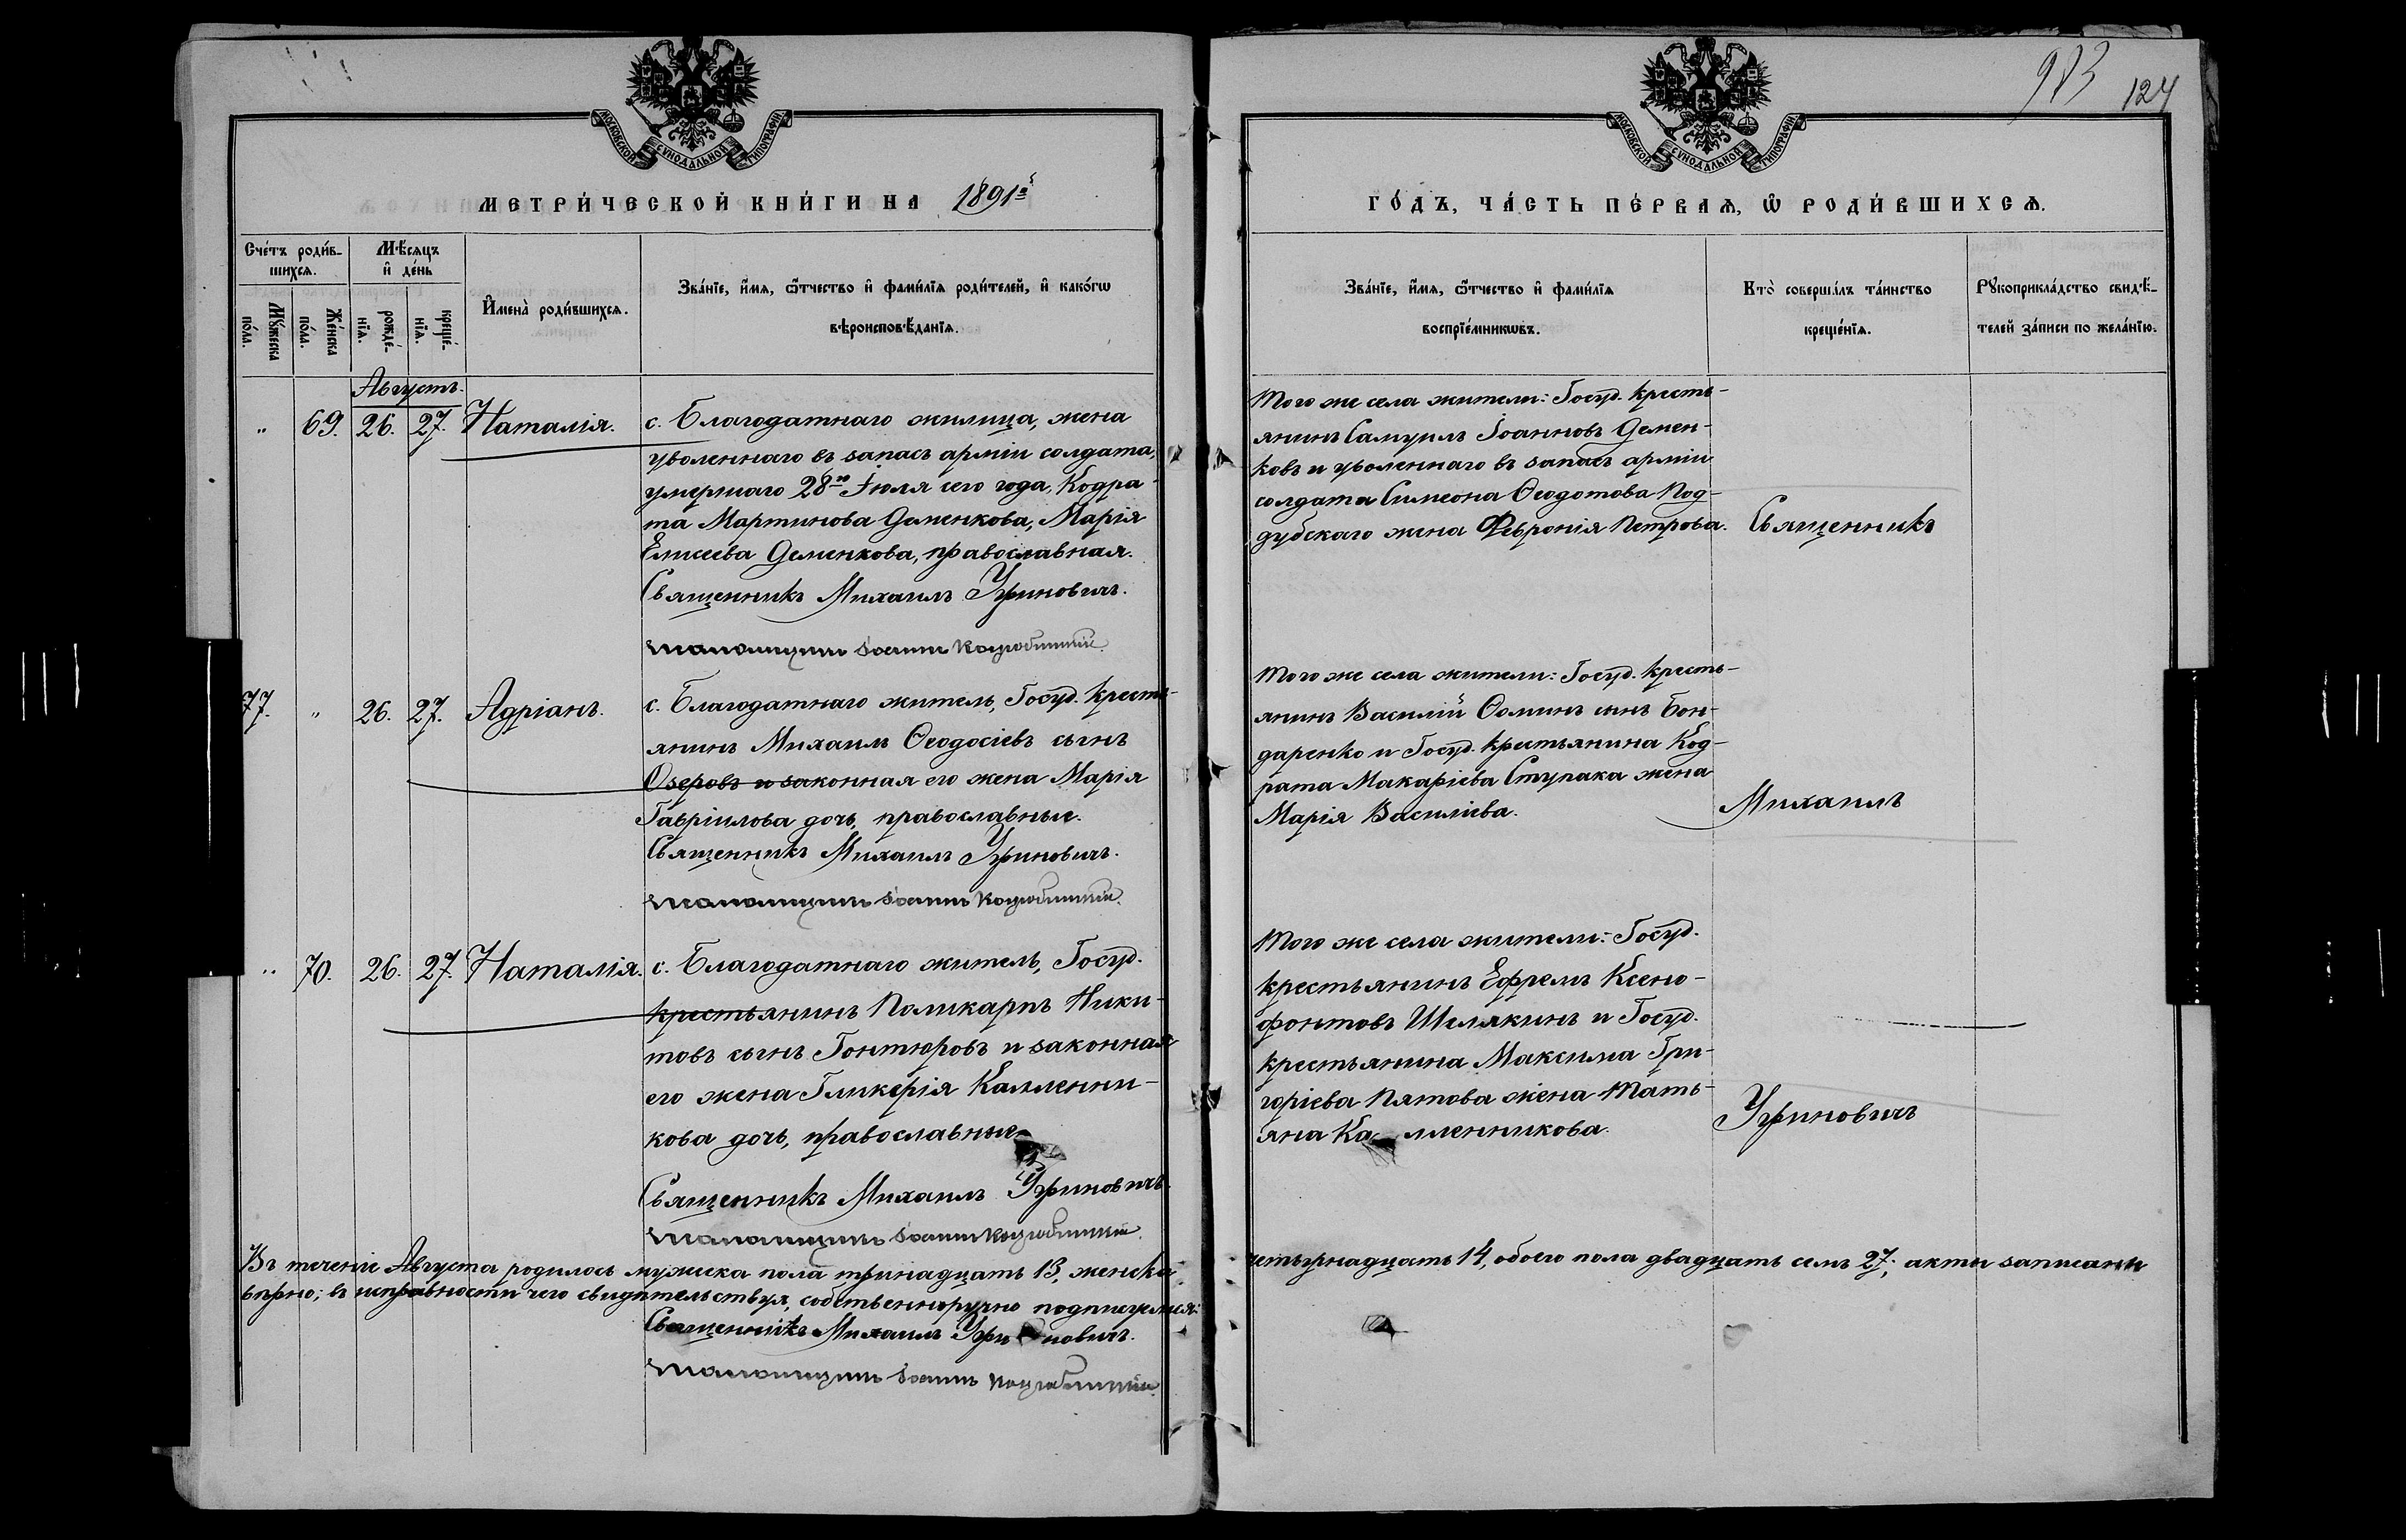 983 124
МОСКОВСКОЙ СУНОДАЛЬНОЙ ТИПОГРАФІИ
МЕТРИ́ЧЕСКОЙ КНИ́ГИ НА 1891й
Сче́тъ роди́в-
шихсѧ.
Мѣ́сѧцъ
и҆ де́нь
Мꙋ́жеска
по́ла.
Же́нска
по́ла.
рожде́-
нїѧ.
креще́-
нїѧ.
И҆мена̀ роди́вшихсѧ.
Зва́нїе, и҆́мѧ, ѻ҆́тчество и҆ фами́лїѧ роди́телей, и҆ како́гѡ
вѣроисповѣ́данїѧ.
Августъ.
„ 69. 26. 27. Наталія.
с. Благодатнаго жилица, жена
уволеннаго въ запасъ арміи солдата,
умершаго 28го Іюля сего года, Кодра-
та Мартинова Деменкова, Марія
Елисеева Деменкова, православная.
Священникъ Михаилъ Угриновичъ.
77. „ 26. 27. Адріанъ.
с. Благодатнаго житель, Госуд. кресть-
янинъ Михаилъ Ѳеодосіевъ сынъ
Озеровъ и законная его жена Марія
Гавріилова дочь, православные.
Священникъ Михаилъ Угриновичъ.
„ 70. 26. 27. Наталія.
с. Благодатнаго житель, Госуд.
крестьянинъ Поликарпъ Ники-
товъ сынъ Гонтюровъ и законная
его жена Гликерія Калленни-
кова дочь, православные.
Священникъ Михаилъ Угриновичъ.
Въ теченіе Августа родилось мужеска пола тринадцать 13, женска
вѣрно; въ исправности чего свидѣтельствуя, собственноручно подписуемся:
Священникъ Михаилъ Угриновичъ.
МОСКОВСКОЙ СУНОДАЛЬНОЙ ТИПОГРАФІИ
ГО́ДЪ, ЧА́СТЬ ПЕ́РВАѦ, Ѡ҆ РОДИ́ВШИХСѦ.
Зва́нїе, и҆́мѧ, ѻ҆́тчество и҆ фами́лїѧ
воспрїе́мникѡвъ.
Кто̀ соверши́лъ та́инство
креще́нїѧ.
Рꙋкоприкла́дство свидѣ́-
телей за́писи по жела́нїю.
Того же села жители: Госуд. кресть-
янинъ Самуилъ Іоанновъ Демен-
ковъ и уволеннаго въ запасъ арміи
солдата Симеона Ѳеодотова Под-
дубскаго жена Февронія Петрова.
Священникъ
Того же села жители: Госуд. кресть-
янинъ Василій Ѳоминъ сынъ Бон-
даренко и Госуд. крестьянина Код-
рата Макаріева Ступака жена
Марія Василіева.
Михаилъ
Того же села жители: Госуд.
крестьянинъ Ефремъ Ксено-
фонтовъ Шелякинъ и Госуд.
крестьянина Максима Гри-
горіева Пятова жена Тать-
яна Калленникова.
Угриновичъ
четырнадцать 14, обоего пола двадцать семь 27; акты записаны